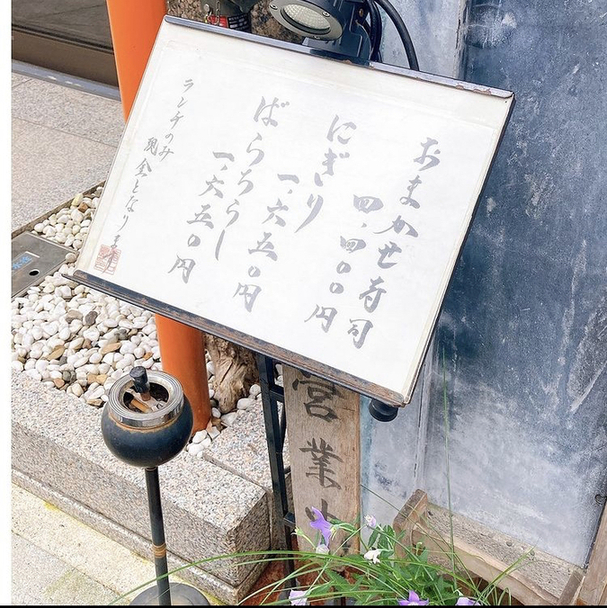 おまかせ寿司
四.四〇〇円
にぎり
一.六五〇円
ばらちらし
一.六五〇円
ランチのみ
現金となります
営業中